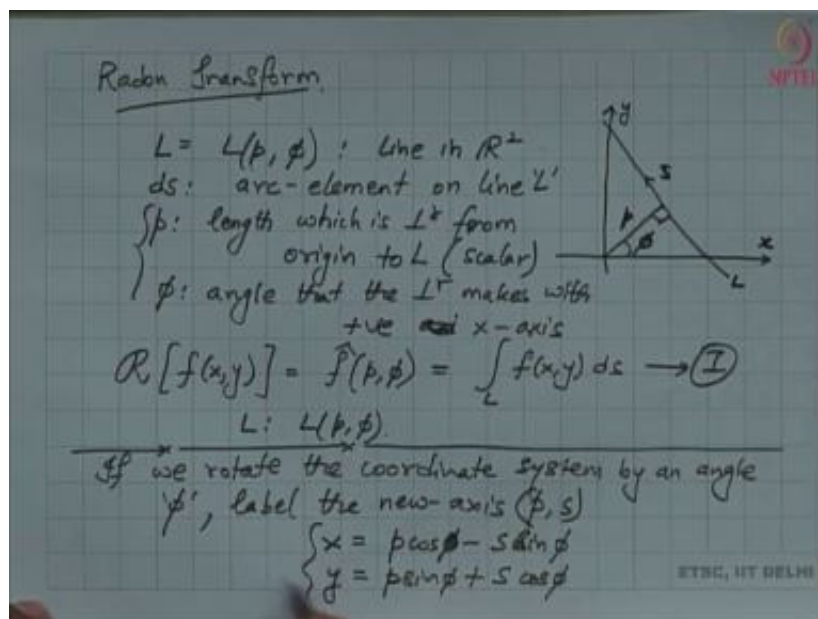 Radon Transform.
L = L(p, φ) : line in R²
ds : arc-element on line 'L'
p : length which is ⊥r from
origin to L (scalar)
φ : angle that the ⊥r makes with
+ve x-axis
R[f(x,y)] = f̂(p,φ) = ∫_L f(x,y) ds → I
L : L(p,φ).
If we rotate the coordinate system by an angle
'φ', label the new-axis (p, s)
x = pcosφ - s sinφ
y = psinφ + s cosφ
y
s
p
φ
x
L
NPTEL
ETSC, IIT DELHI